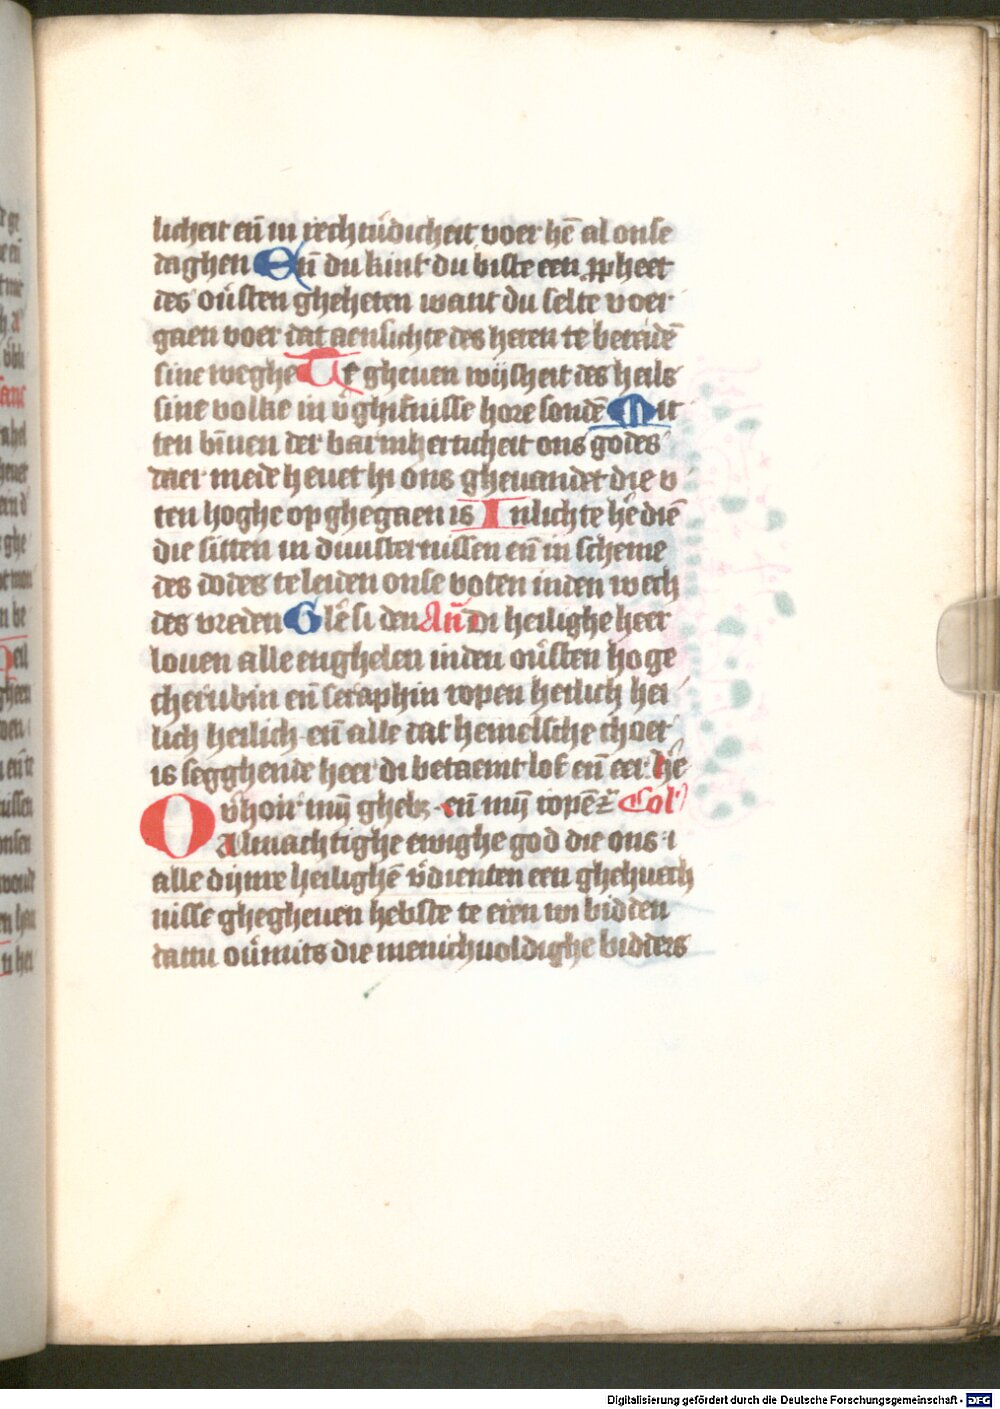 licheit eñ in rechtu̇dicheit voer hē al onse
daghen Eñ du kint du biste een ꝓpheet
des ou̇sten gheheten want du selte voer
gaen voer dat aensichte des heren te bereidē
sine weghe Te gheuen wijsheit des heils
sine volke in v̇ghifnisse hore sondē Mit
ten bīnen der barmherticheit ons godes
daer mede heuet hi ons gheuandet die v
ten hoghe op ghegaen is Inlichte hē diē
die sitten in duusternissen eñ in scheme
des dodes te leiden onse voten inden wech
des vreden Glē si den Añ Di heilighe heer
louen alle enghelen inden ou̇sten hoge
cherubin eñ seraphin ropen heilich hei
lich heilich eñ alle dat hemelsche choer
is segghende heer di betaemt lof eñ eer hē
O v̇hoir mȳ gheb₃ eñ mȳ ropē⁊ Col'
Almachtighe ewighe god die ons i
alle dijnre heilighē v̇dienten een ghehuech
nisse ghegheuen hebste te eren wi bidden
dattu ou̇mits die menichuoldighe bidders
Digitalisierung gefördert durch die Deutsche Forschungsgemeinschaft - DFG